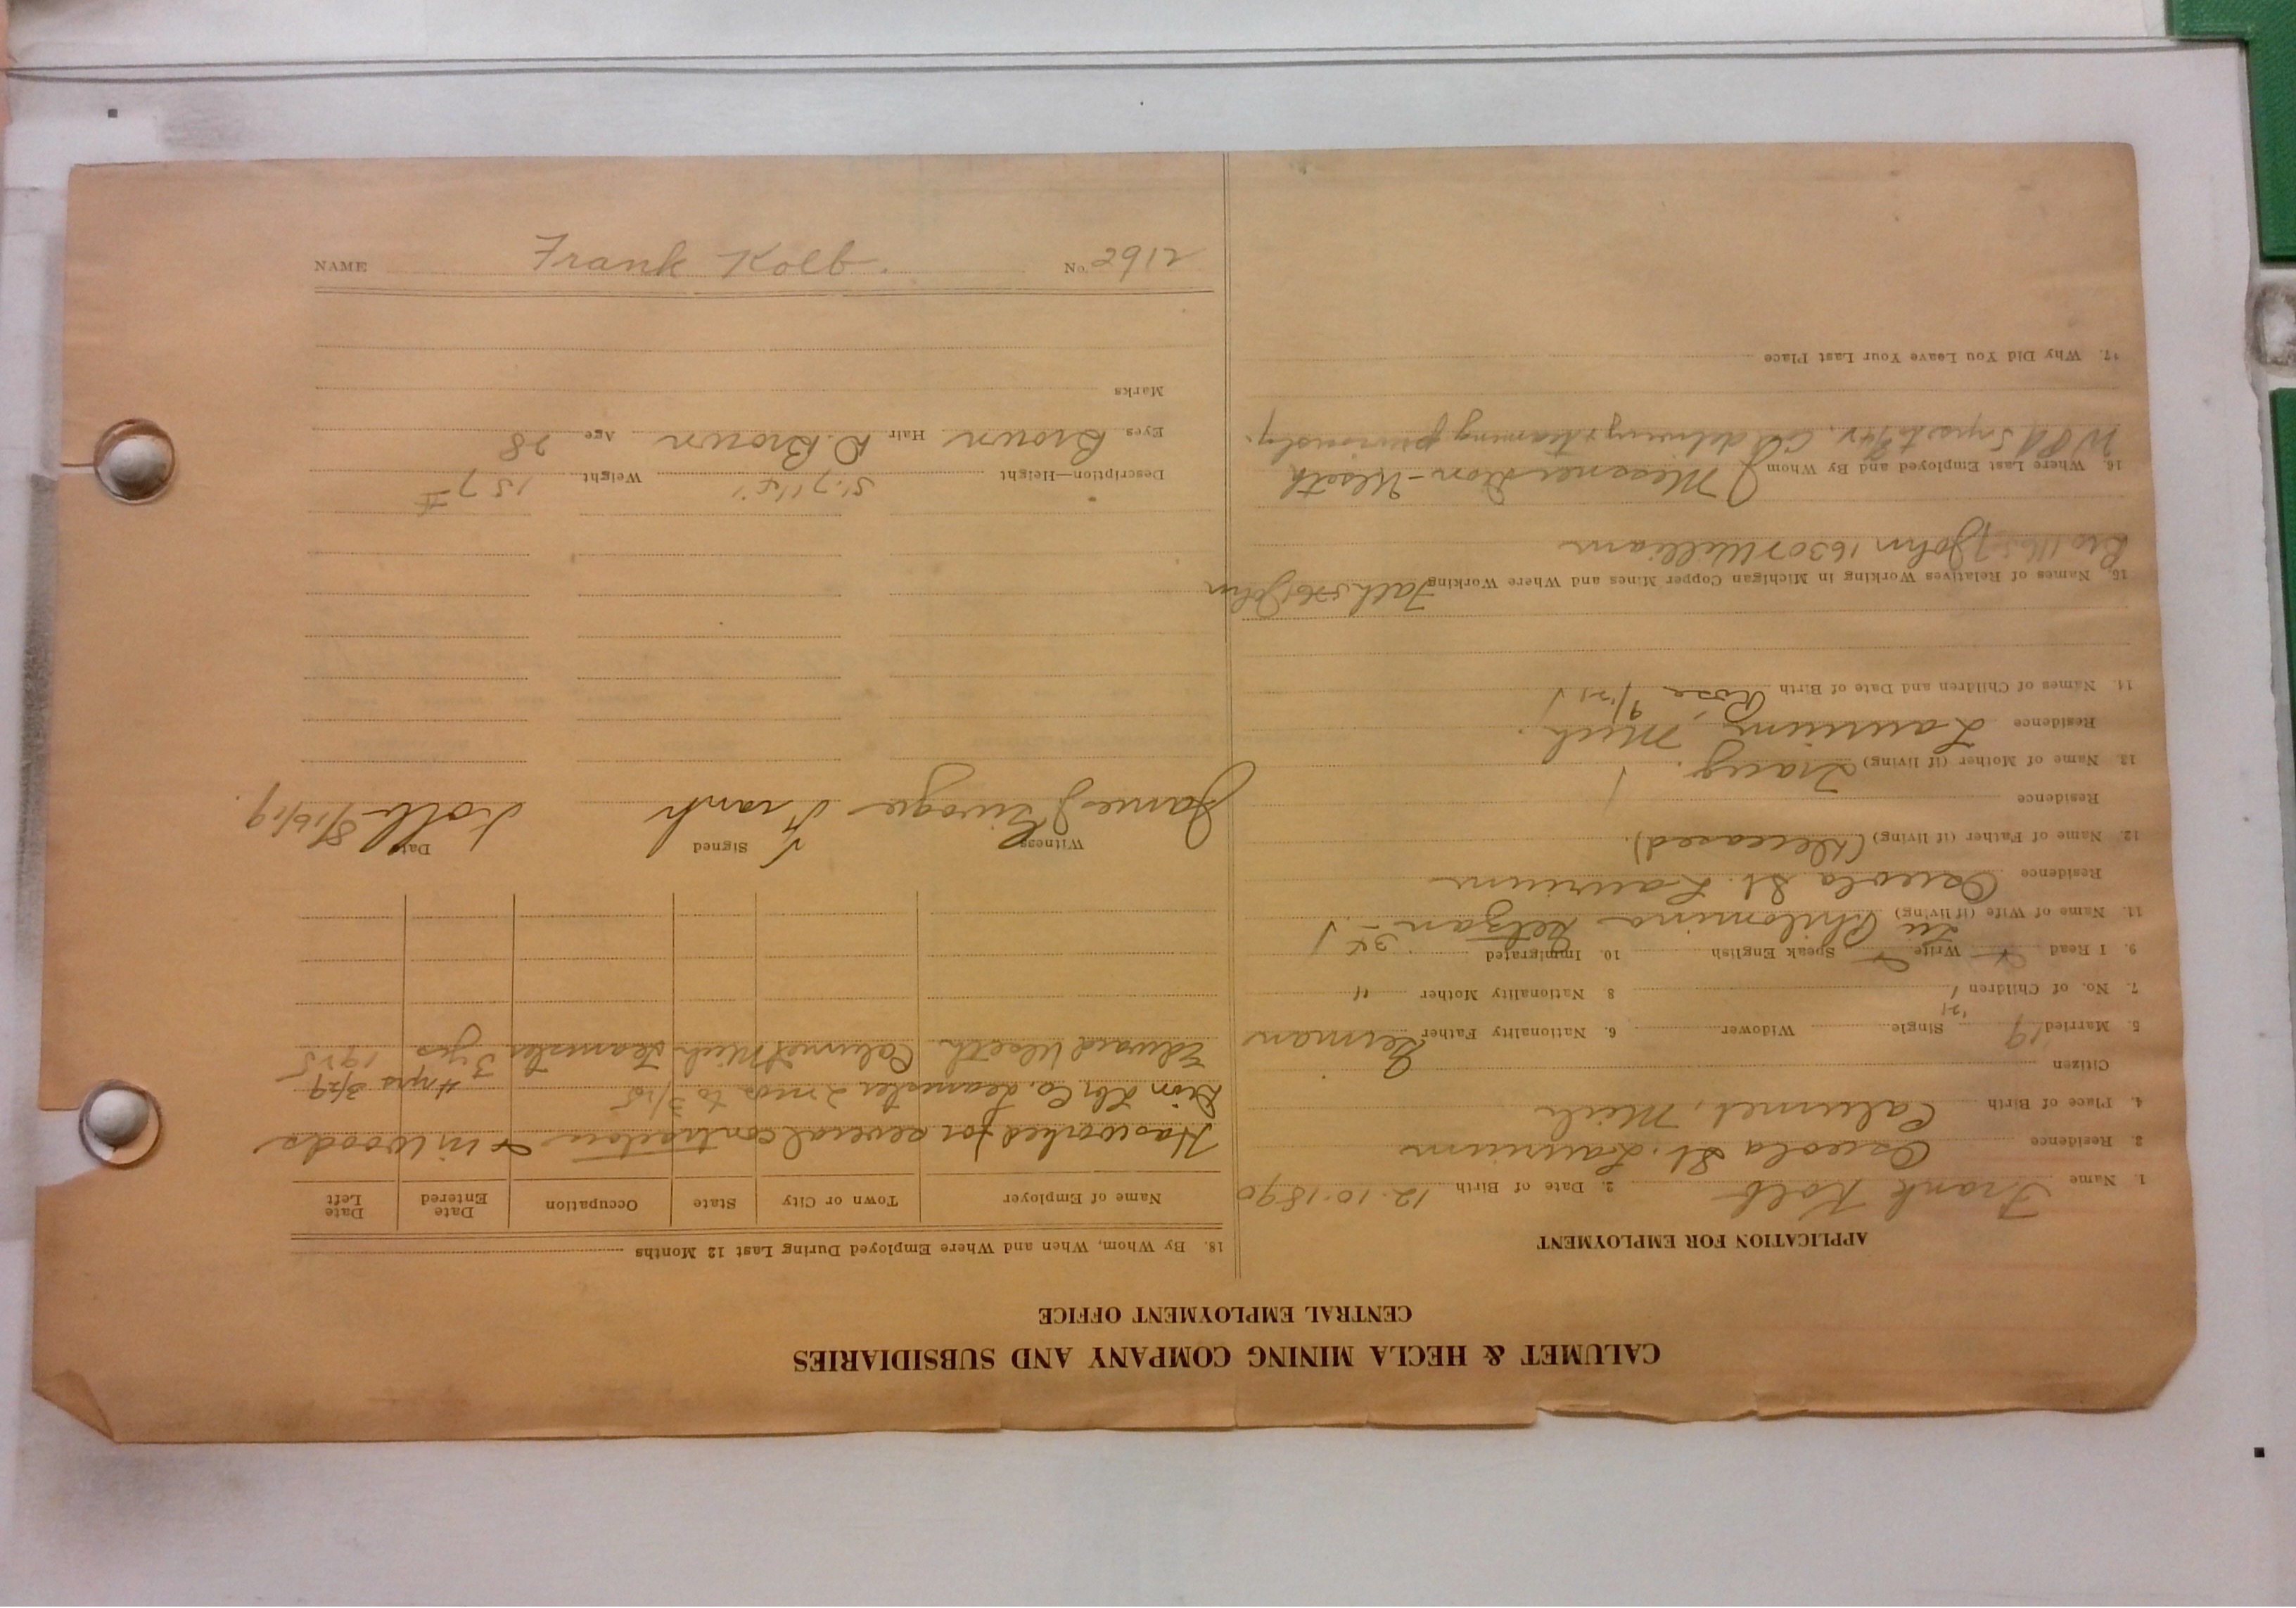 CALUMET & HECLA MINING COMPANY AND SUBSIDIARIES
CENTRAL EMPLOYMENT OFFICE
APPLICATION FOR EMPLOYMENT
1. Name Frank Kolb 2. Date of Birth 12-10-1890
3. Residence Osceola St. Laurium
4. Place of Birth Calumet, Mich
Citizen
5. Married 19 Single '21 Widower 6. Nationality Father German
7. No. of Children 1 8 Nationality Mother "
9. I Read Write Speak English 10. Immigrated 34
11. Name of Wife (if living) Philomina
Residence Osceola St. Laurium
12. Name of Father (if living) (Deceased).
Residence
13. Name of Mother (if living) Tracy.
Residence Laurium, Mich.
14. Names of Children and Date of Birth Rose 9/'21
15. Names of Relatives Working in Michigan Copper Mines and Where Working Fath John
Bro John 16307 William
16. Where Last Employed and By Whom Messner Dion - Ulseth
WPA 5 yrs to delivering & teaming previously.
17. Why Did You Leave Your Last Place
18. By Whom, When and Where Employed During Last 12 Months
Name of Employer Town or City State Occupation Date Entered Date Left
Has worked for several contractors & in woods
Dion Lbr. Co. teamster 2 mos to 3/25 4 yrs 3/29
Edward Ulseth. Calumet Mich teamster 3 yrs 1925
Witness Signed Date
James Frank Kolb 8/16/19.
Description—Height 5' 7 1/4" Weight 157 #
Eyes Brown Hair D. Brown Age 28
Marks
NAME Frank Kolb. No. 2912